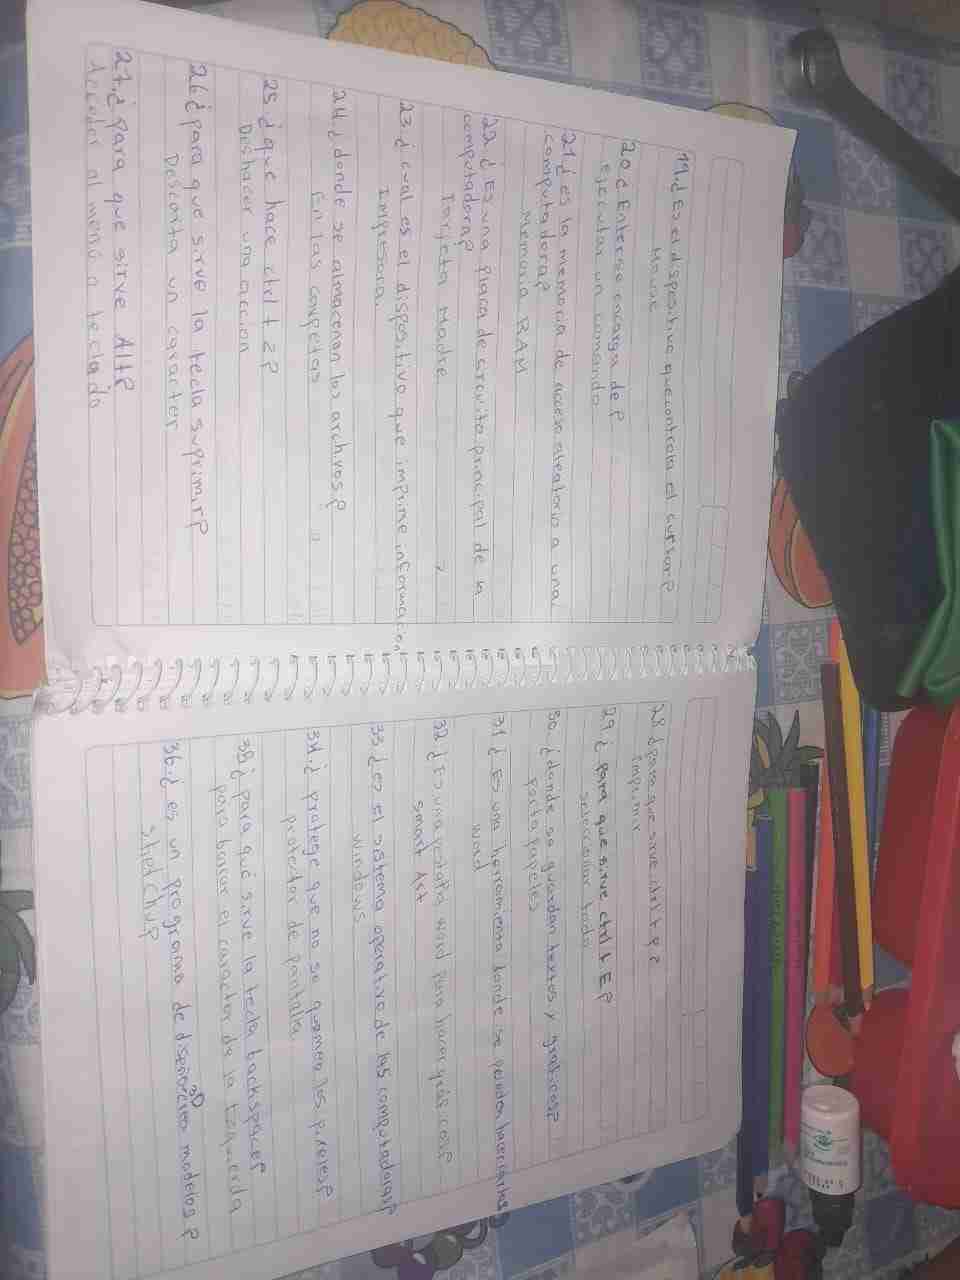 19.¿ Es el dispositivo que controla el cursor?
Mouse
20¿ Enter se encarga de?
Ejecutar un comando
21¿ es la memoria de acceso aleatorio a una
computadora?
Memoria RAM
22¿ Es una placa de circuito principal de la
computadora?
Tarjeta Madre
23¿ cual es el dispositivo que imprime informacion
Impresora
24¿ donde se almacenan los archivos?
En las carpetas
25¿ que hace ctrl + z?
Deshacer una acción
26¿ para que sirve la tecla suprimir?
Descarta un caracter
27.¿ para que sirve Alt?
Acceder al menú o teclado
28¿ para que sirve ctrl + p?
imprimir
29¿ para que sirve ctrl + E?
seleccionar todo
30.¿ donde se guardan textos y graficos?
porta papeles
31¿ Es una herramienta donde se pueden hacer
word
32¿ Es una word para hacer gráficos?
smart Art
33¿ es el sistema operativo de las computadoras?
windows
34.¿ protege que no se quemen los pixeles?
protector de pantalla
35¿ para qué sirve la tecla backspace?
para borrar el caracter de la izquierda
36.¿ es un programa de diseño modelos ?
3D